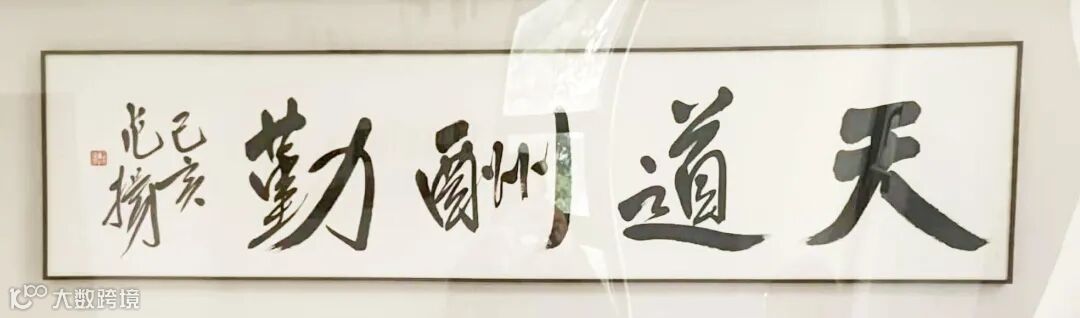 天道酬勤
己亥
大数跨境